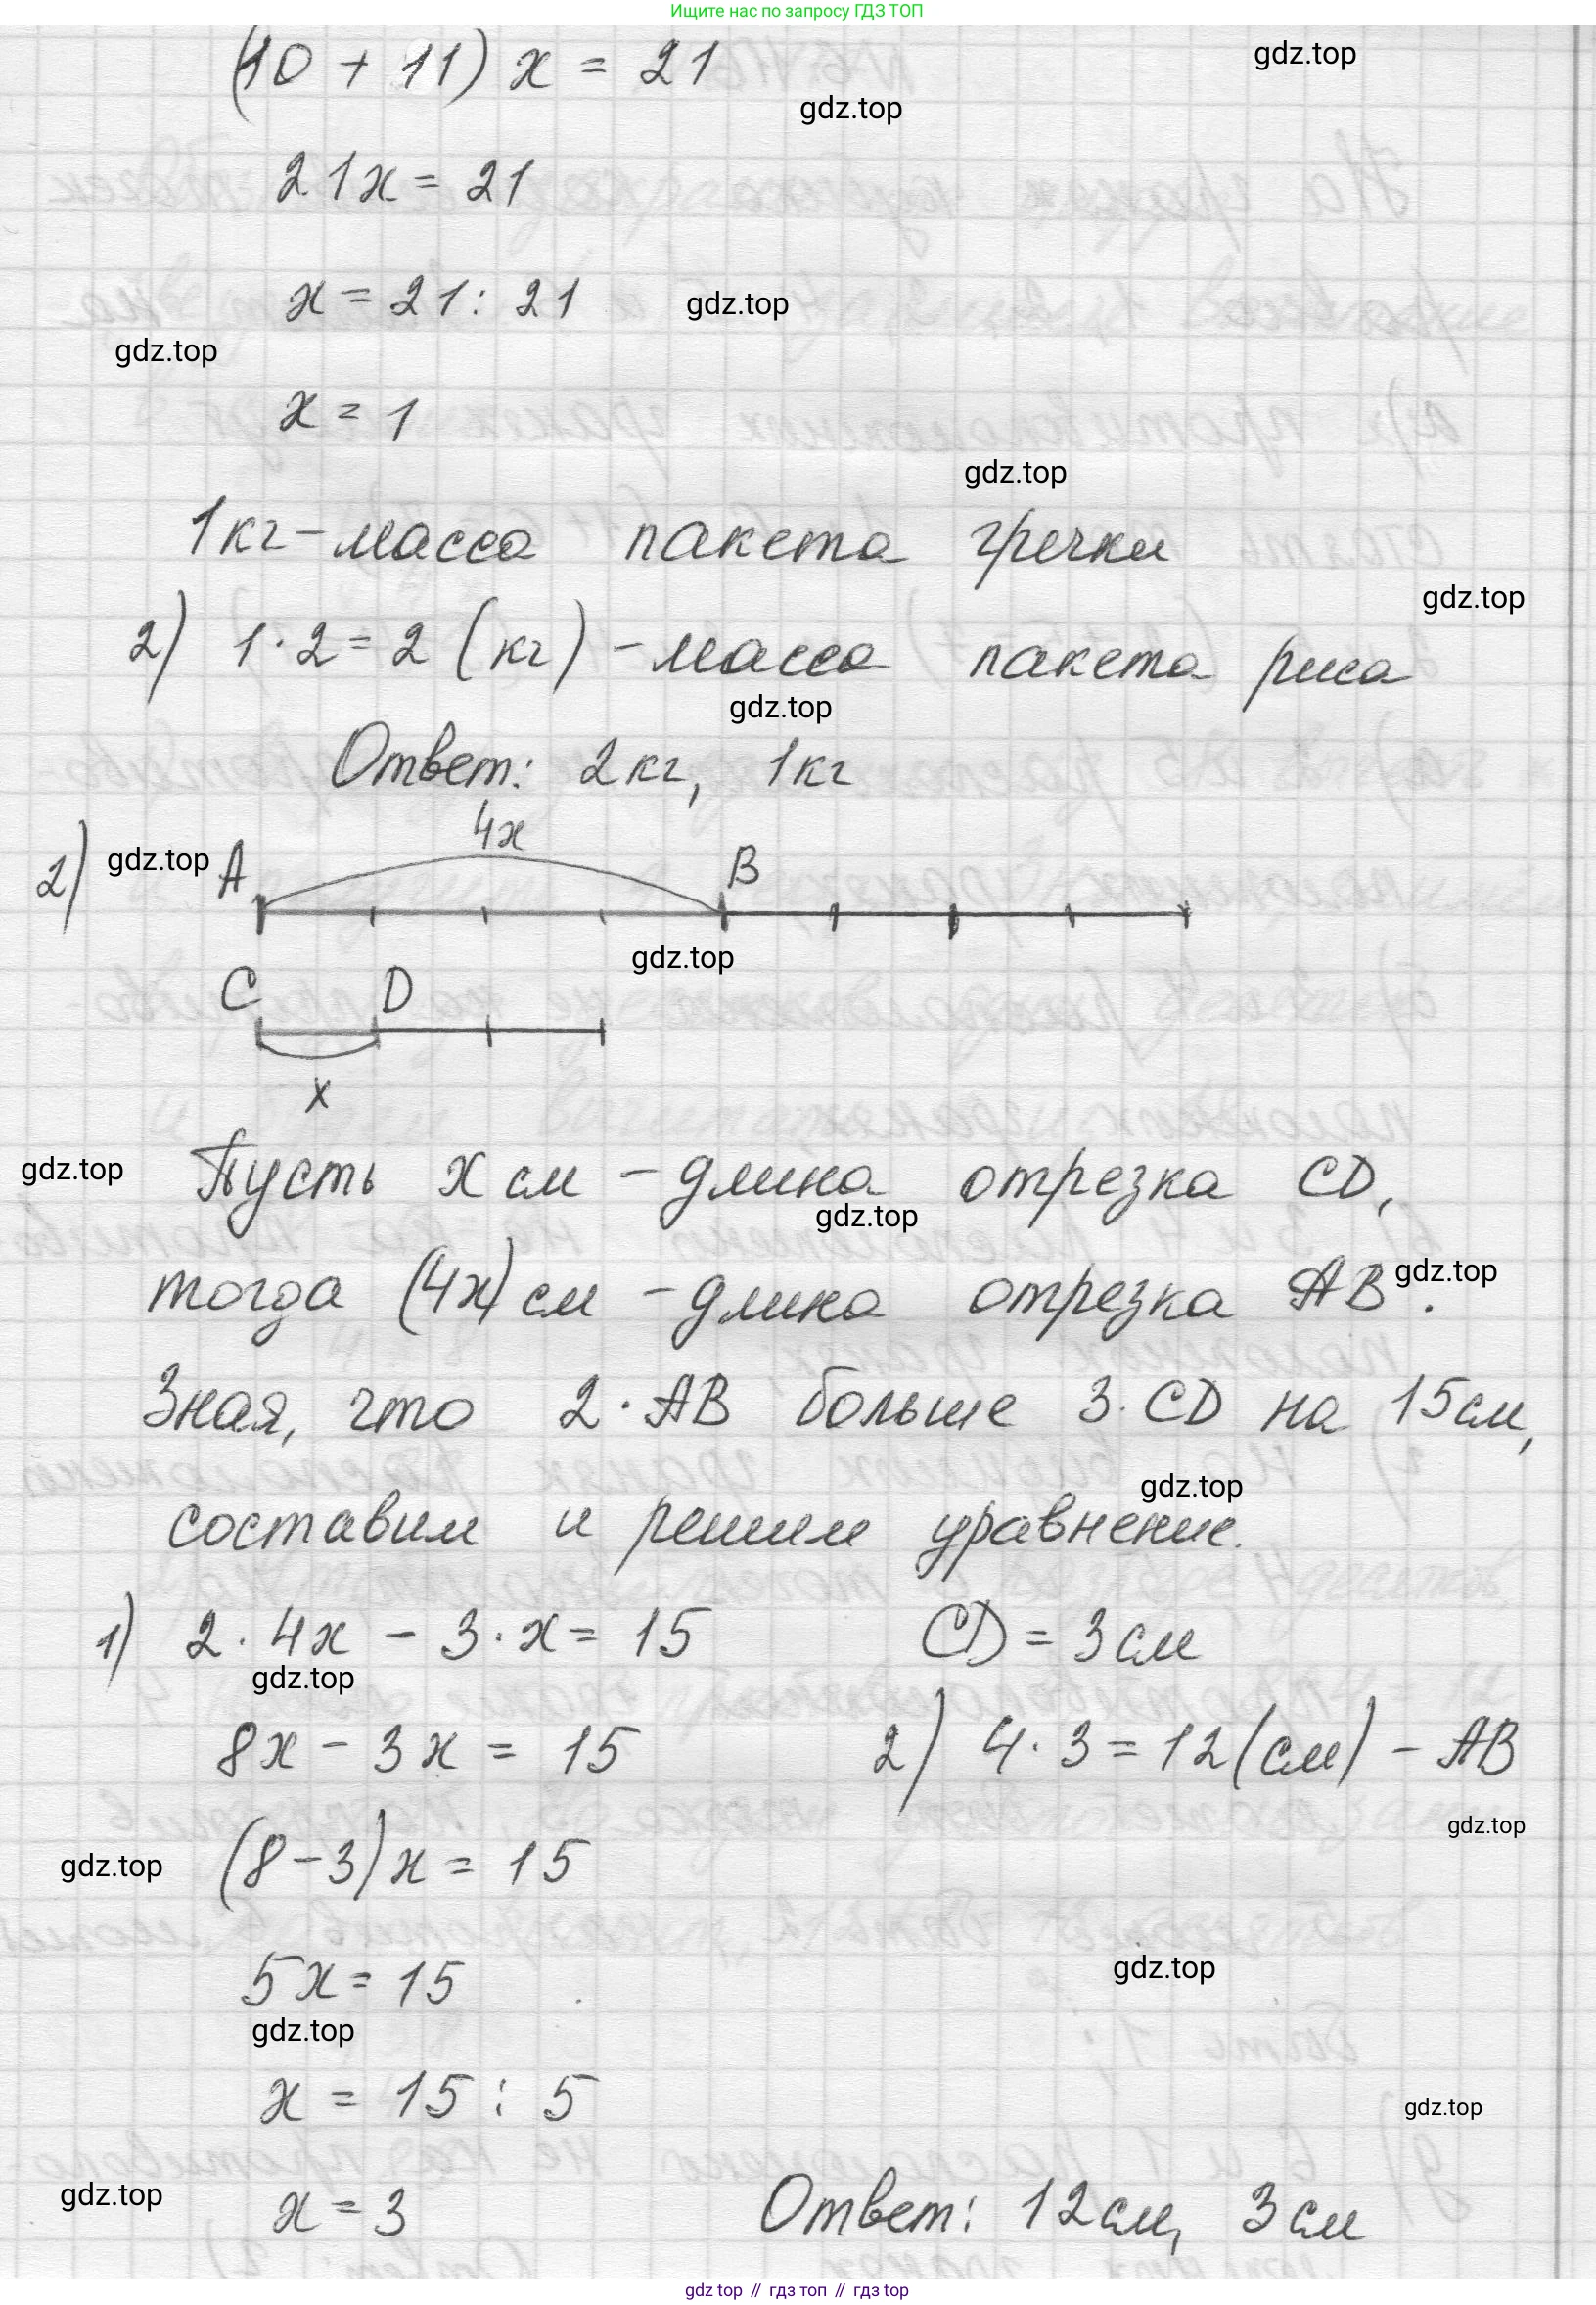 Ищите нас по запросу ГДЗ ТОП
(10 + 11) x = 21
gdz.top
gdz.top
21x = 21
x = 21 : 21
gdz.top
gdz.top
x = 1
gdz.top
1кг - масса пакета гречки
gdz.top
2) 1 · 2 = 2 (кг) - масса пакета риса
gdz.top
Ответ: 2кг, 1кг
4x
2) gdz.top A B
gdz.top
C D
x
gdz.top
Пусть x см - длина отрезка CD,
gdz.top
тогда (4x) см - длина отрезка AB.
gdz.top
Зная, что 2 · AB больше 3 · CD на 15см,
gdz.top
составим и решим уравнение.
1) 2 · 4x - 3 · x = 15 CD = 3см
gdz.top
8x - 3x = 15 2) 4 · 3 = 12 (см) - AB
gdz.top
gdz.top (8 - 3)x = 15
5x = 15 gdz.top
gdz.top
x = 15 : 5
gdz.top
gdz.top
x = 3 Ответ: 12см, 3см
gdz top // гдз топ // гдз top